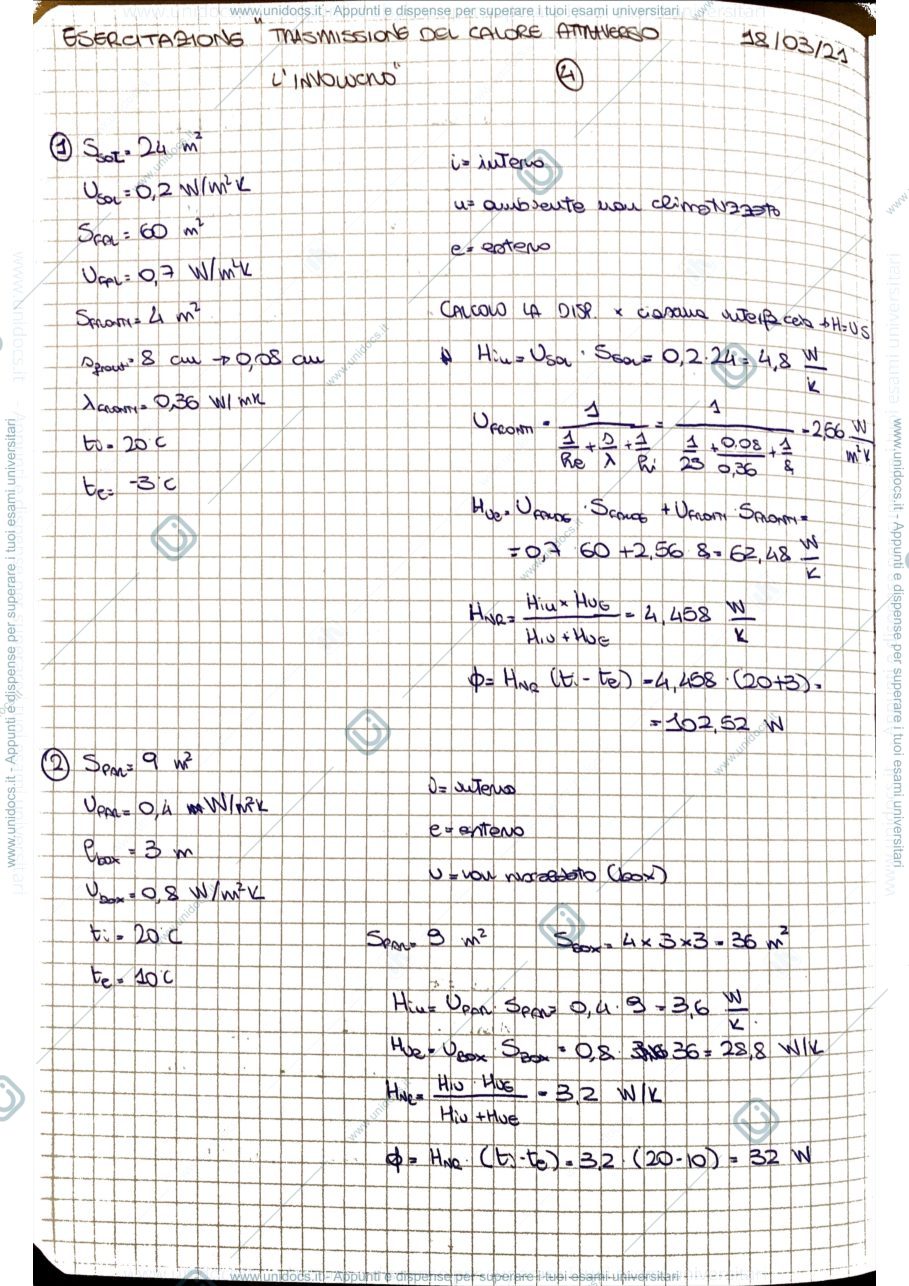 www.unidocs.it - Appunti e dispense per superare i tuoi esami universitari
ESERCITAZIONE "TRASMISSIONE DEL CALORE ATTRAVERSO
18/03/21
L'INVOLUCRO"
4
1 S_SOL = 24 m²
U_SOL = 0,2 W/m²K
S_FAL = 60 m²
U_FAL = 0,7 W/m²K
S_FRONT = 4 m²
s_front = 8 cm → 0,08 cm
λ_FRONT = 0,36 W/mK
ti = 20°C
te = -3°C
i = interno
u = ambiente non climatizzato
e = esterno
CALCOLO LA DISP. x ciascuna interfaccia → H=US
Hiu = U_SOL · S_SOL = 0,2·24 = 4,8 W/K
U_FRONT = 1/(1/he + s/λ + 1/hi) = 1/(1/23 + 0.08/0,36 + 1/8) = 2,56 W/m²K
H_ue = U · S + U_FRONT · S_FRONT =
= 0,7 60 + 2,56 8 = 62,48 W/K
H_NR = Hiu × HUE / HiU + HUE = 4,458 W/K
ϕ = H_NR (ti - te) = 4,458 · (20+3) =
= 102,52 W
2 S_PAR = 9 m²
U_PAR = 0,4 W/m²K
l_box = 3 m
U_box = 0,8 W/m²K
ti = 20°C
te = 10°C
i = interno
e = esterno
U = non riscaldato (box)
S_PAR = 9 m² S_BOX = 4×3×3 = 36 m²
Hiu = U_PAR · S_PAR = 0,4 · 9 = 3,6 W/K
Hue = U_BOX · S_BOX = 0,8 · 36 = 28,8 W/K
H_NR = HiU · HUE / HiU + HUE = 3,2 W/K
ϕ = H_NR · (ti - te) = 3,2 · (20-10) = 32 W
www.unidocs.it - Appunti e dispense per superare i tuoi esami universitari